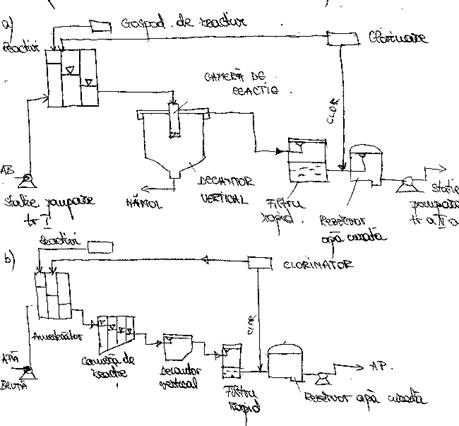 a)
Gospod. de reactivi
reactivi
Clorinare
CAMERĂ DE
REACȚIE
CLOR
AB
Stație pompare
tr I
NĂMOL
DECANTOR
VERTICAL
Filtru
rapid
Rezervor
apă curată
Stație
pompare
tr a II a
b)
Reactivi
CLORINATOR
Amestecător
Cameră de
reacție
Decantor
vertical
CLOR
Filtru
rapid
Rezervor apă curată
AP.
APĂ
BRUTĂ